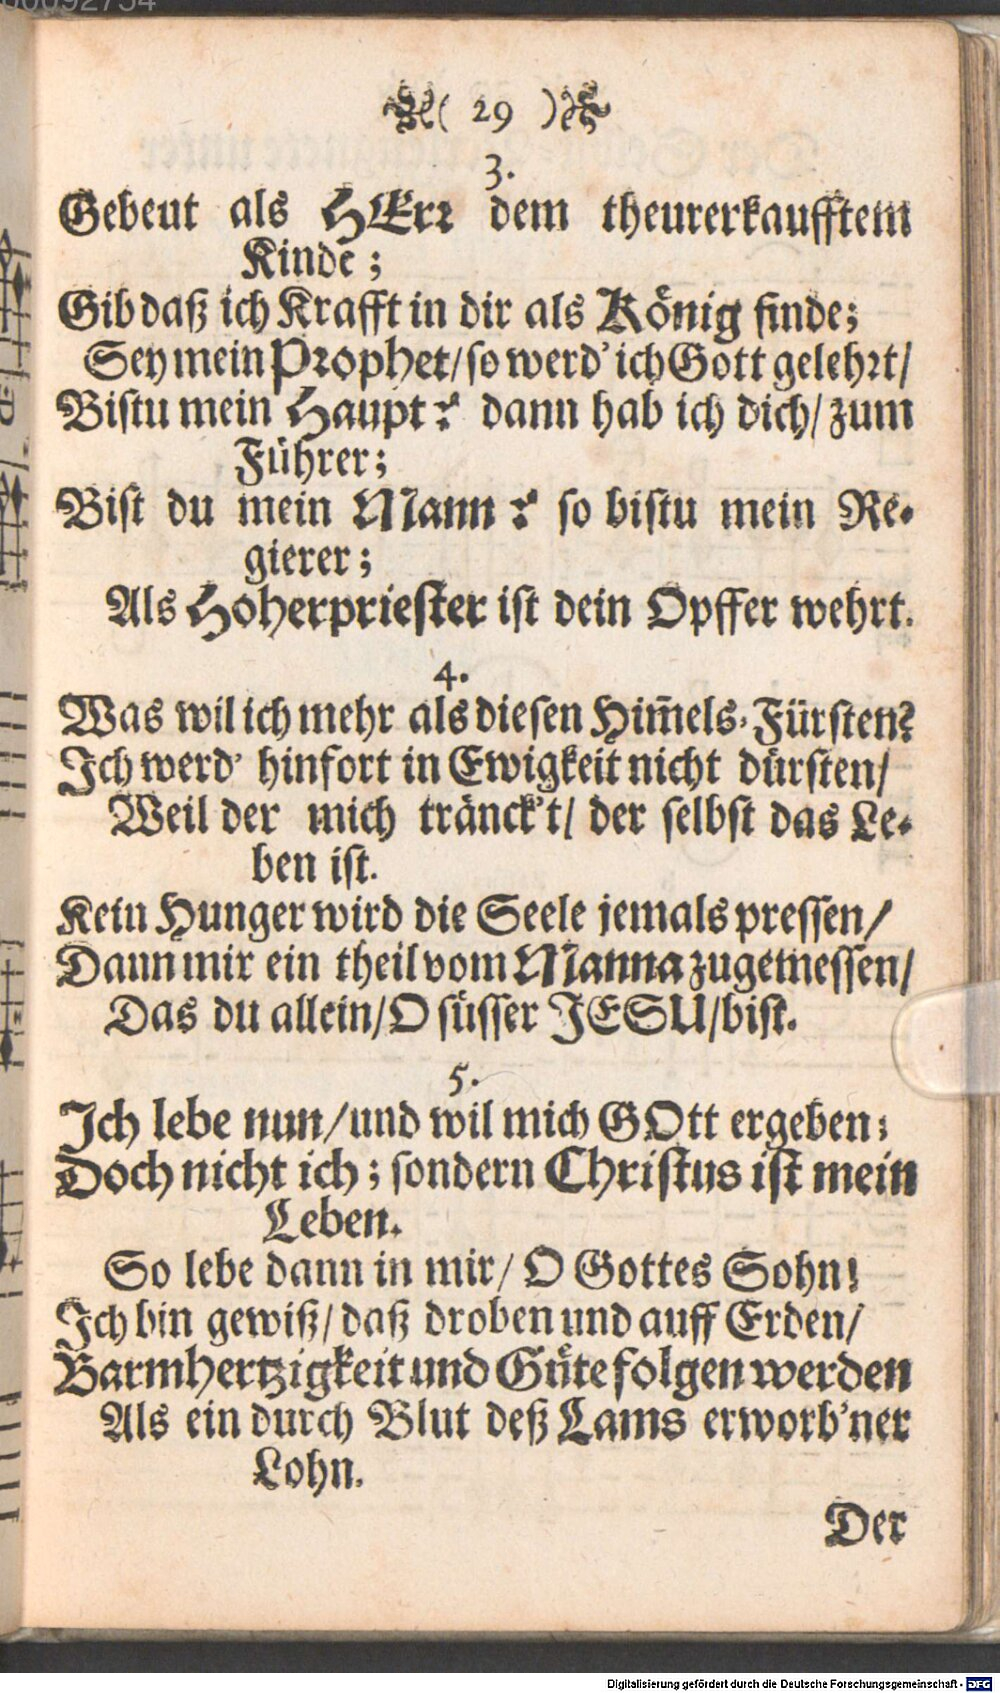 ( 29 )
3.
Gebeut als HErr dem theurerkaufftem
Kinde;
Gib daß ich Krafft in dir als König finde;
Sey mein Prophet/ so werd' ich Gott gelehrt/
Bistu mein Haupt? dann hab ich dich/ zum
Führer;
Bist du mein Mann? so bistu mein Re-
gierer;
Als Hoherpriester ist dein Opffer wehrt.
4.
Was wil ich mehr als diesen Him̄els-Fürsten?
Ich werd' hinfort in Ewigkeit nicht dürsten/
Weil der mich tränck't/ der selbst das Le-
ben ist.
Kein Hunger wird die Seele jemals pressen/
Dann mir ein theil vom Manna zugemessen/
Das du allein/ O süsser JESU/ bist.
5.
Ich lebe nun/ und wil mich GOtt ergeben;
Doch nicht ich; sondern Christus ist mein
Leben.
So lebe dann in mir/ O Gottes Sohn!
Ich bin gewiß/ daß droben und auff Erden/
Barmhertzigkeit und Güte folgen werden
Als ein durch Blut deß Lams erworb'ner
Lohn.
Der
Digitalisierung gefördert durch die Deutsche Forschungsgemeinschaft - DFG